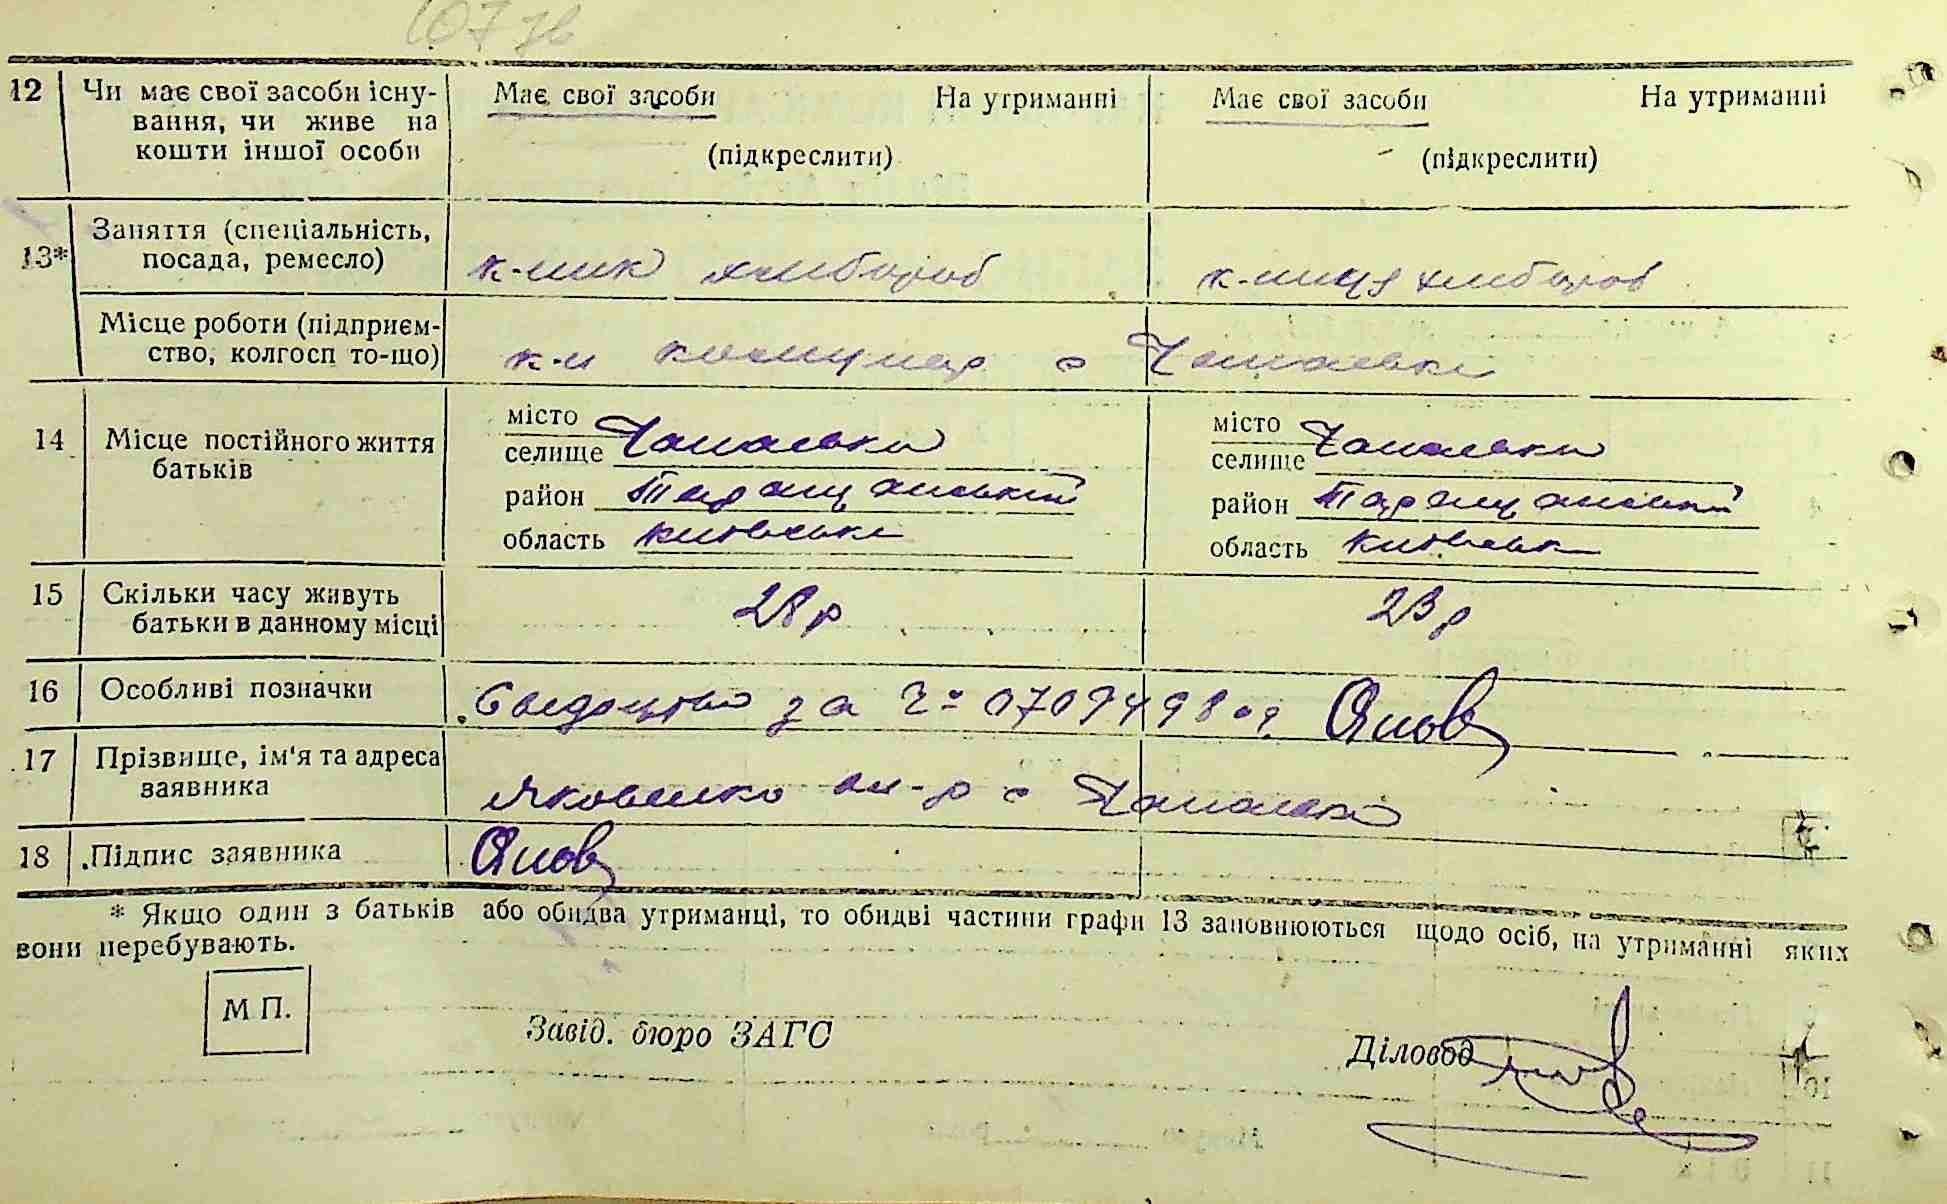 107 зв
12 Чи має свої засоби існу-
вання, чи живе на
кошти іншої особи
Має свої засоби На утриманні
(підкреслити)
Має свої засоби На утриманні
(підкреслити)
13* Заняття (спеціальність,
посада, ремесло)
к-ник хлібороб
к-ниця хлібороб
Місце роботи (підприєм-
ство, колгосп то-що)
к-п комунар с
14 Місце постійного життя
батьків
місто
селище
район Таращанський
область Київська
місто
селище
район Таращанський
область Київськ
15 Скільки часу живуть
батьки в данному місці
28 р
23 р
16 Особливі позначки
за № 0707498
17 Прізвище, ім'я та адреса
заявника
Яковенко с
18 Підпис заявника
* Якщо один з батьків або обидва утриманці, то обидві частини графи 13 заповнюються щодо осіб, на утриманні яких
вони перебувають.
М П.
Завід. бюро ЗАГС
Діловод